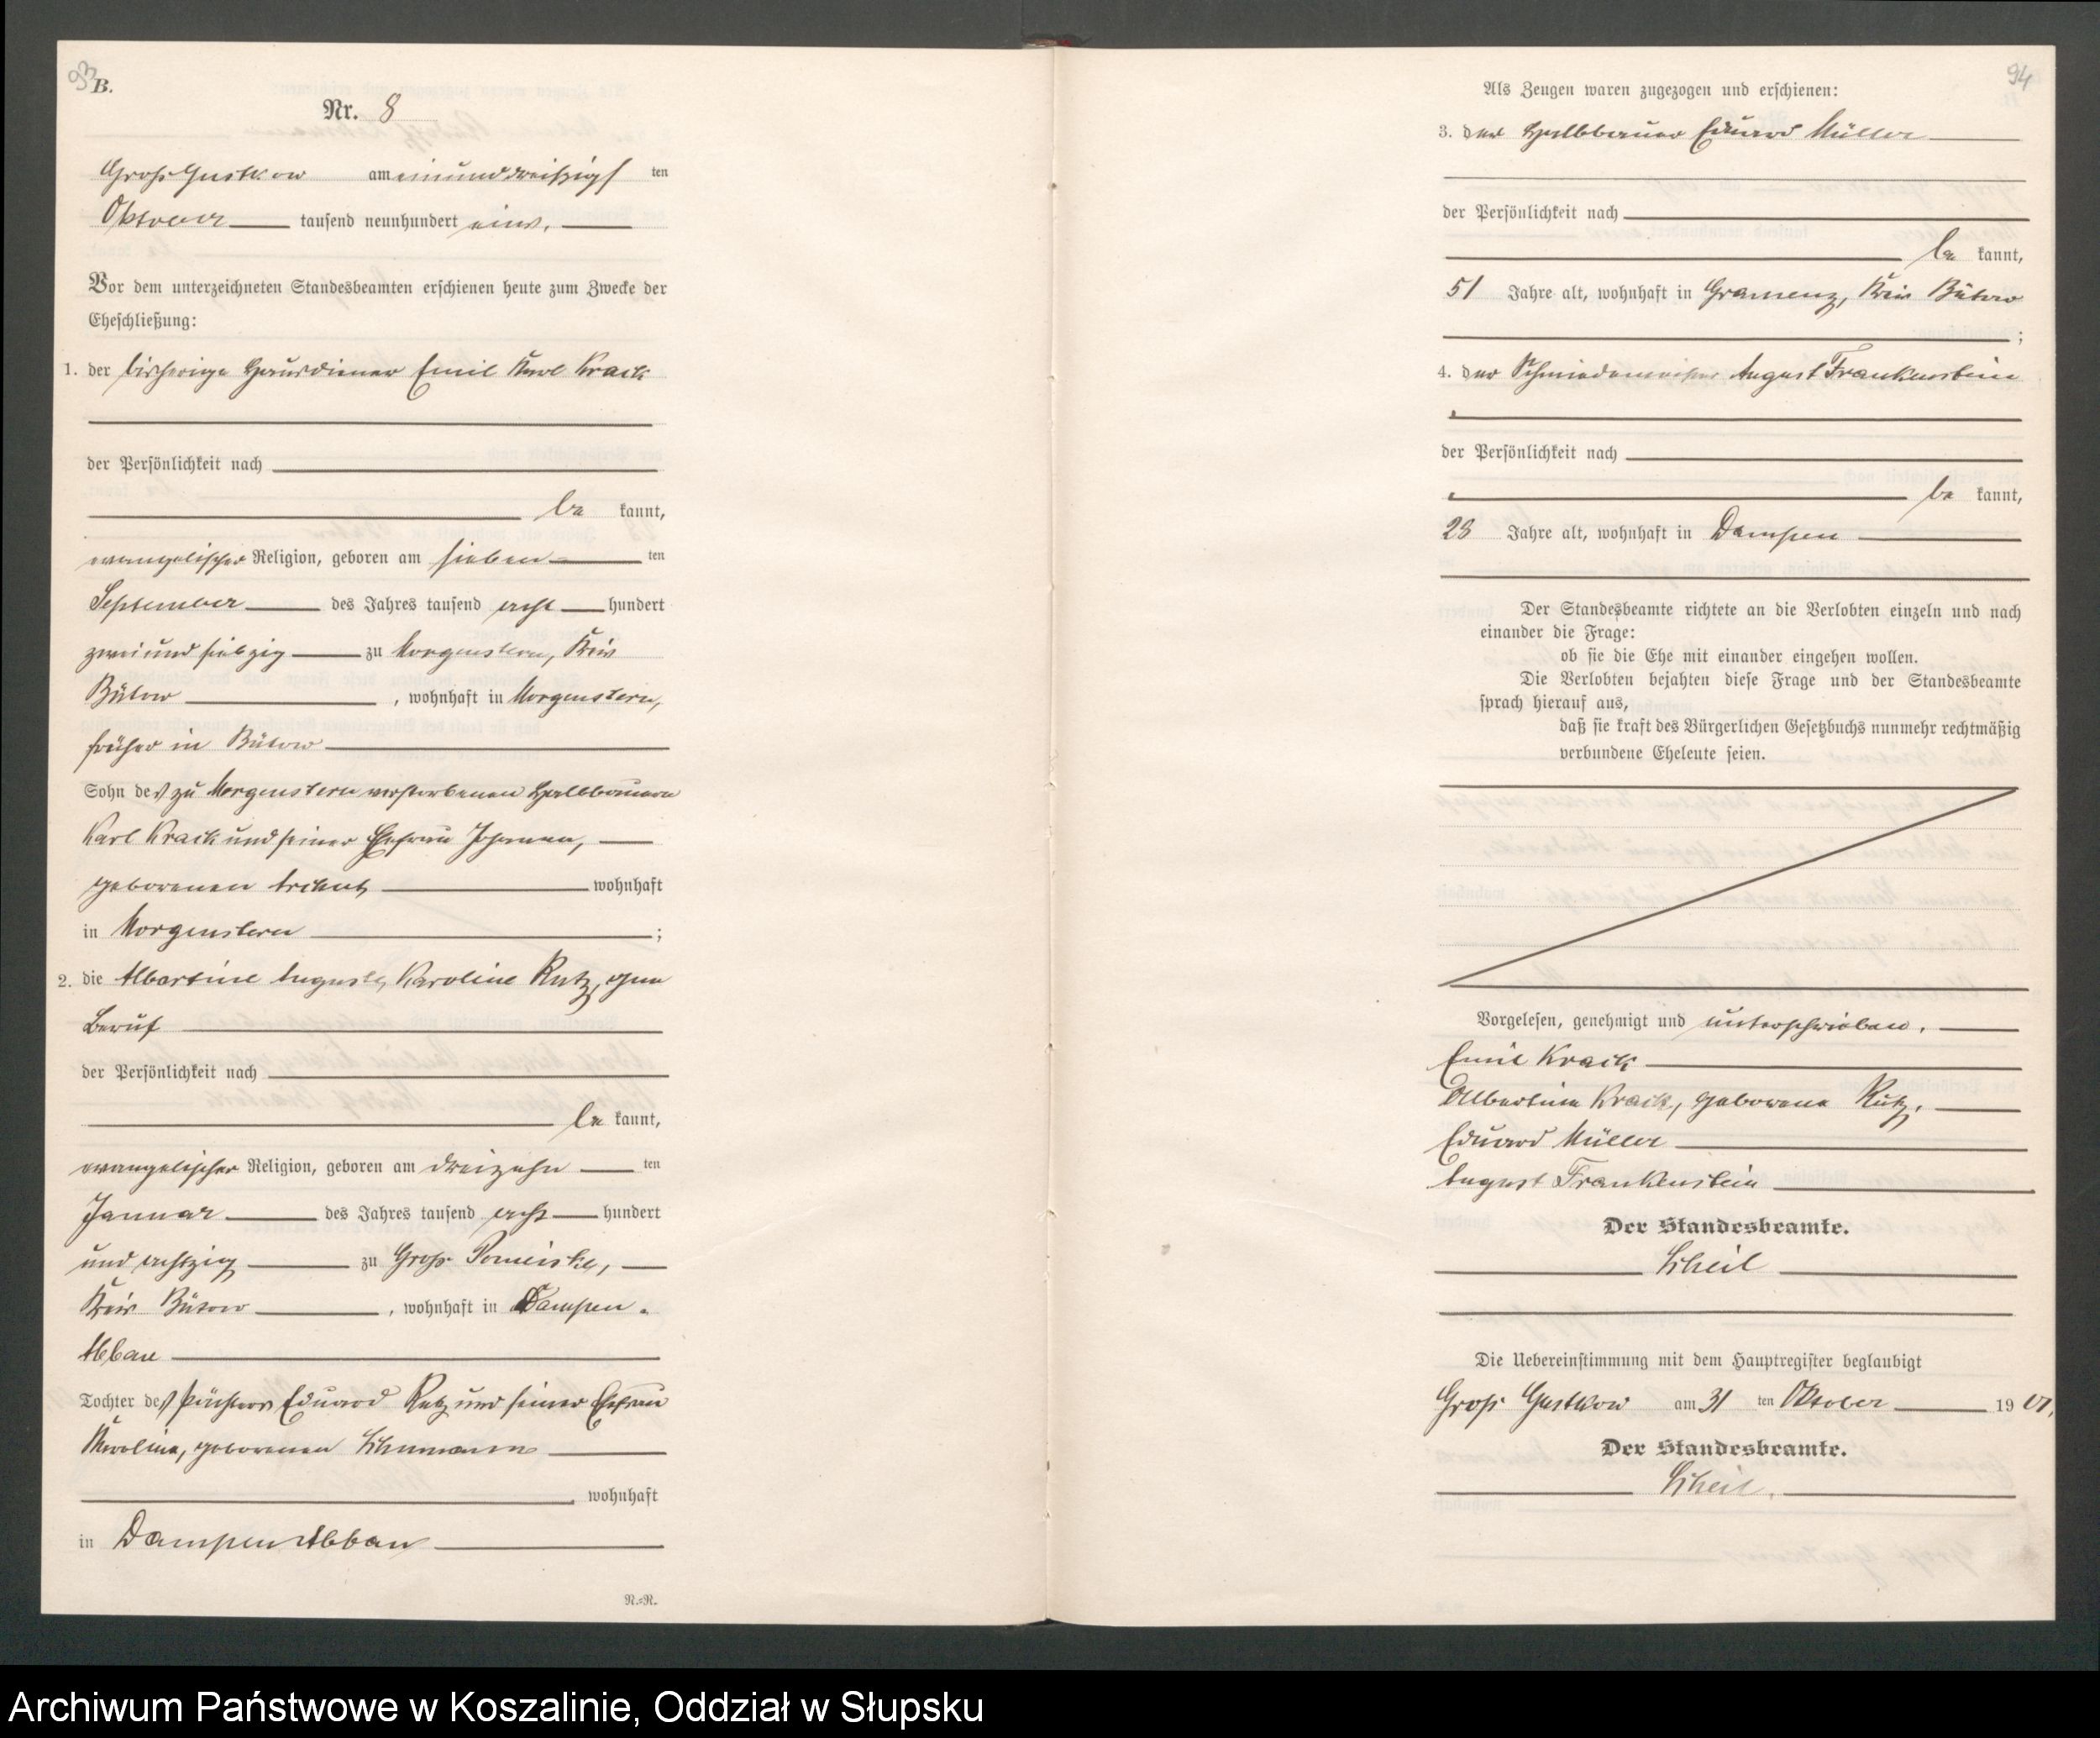 93
B.
Nr. 8
Groß Gustkow am einunddreißigs ten
Oktober tausend neunhundert eins.
Vor dem unterzeichneten Standesbeamten erschienen heute zum Zwecke der
Eheschließung:
1. der bisherige Hausdiener Emil Karl Krack
der Persönlichkeit nach
be kannt,
evangelischer Religion, geboren am sieben ten
September des Jahres tausend acht hundert
zweiundsiebzig zu Morgenstern, Kreis
Bütow , wohnhaft in Morgenstern,
früher in Bütow
Sohn des zu Morgenstern verstorbenen Halbbauern
Karl Krack und seiner Ehefrau Johanna,
geborenen wohnhaft
in Morgenstern ;
2. die Albertine Auguste, Karoline Rutz, ohne
Beruf
der Persönlichkeit nach
be kannt,
evangelischer Religion, geboren am dreizehn ten
Januar des Jahres tausend acht hundert
und achtzig zu Groß Pomeiske,
Kreis Bütow , wohnhaft in Dampen-
Abbau
Tochter des Pächters Eduard Rutz und seiner Ehefrau
Karoline, geborenen Schumann
wohnhaft
in Dampen Abbau
R.=R.
94
Als Zeugen waren zugezogen und erschienen:
3. der Halbbauer Eduard Müller
der Persönlichkeit nach
be kannt,
51 Jahre alt, wohnhaft in Gramenz, Kreis Bütow
;
4. der Schmiedemeister August Frankenstein
der Persönlichkeit nach
be kannt,
28 Jahre alt, wohnhaft in Dampen
Der Standesbeamte richtete an die Verlobten einzeln und nach
einander die Frage:
ob sie die Ehe mit einander eingehen wollen.
Die Verlobten bejahten diese Frage und der Standesbeamte
sprach hierauf aus,
daß sie kraft des Bürgerlichen Gesetzbuchs nunmehr rechtmäßig
verbundene Eheleute seien.
Vorgelesen, genehmigt und unterschrieben.
Emil Krack
Albertine Krack, geborene Rutz.
Eduard Müller
August Frankenstein
Der Standesbeamte.
Scheil
Die Uebereinstimmung mit dem Hauptregister beglaubigt
Groß Gustkow am 31 ten Oktober 19 01.
Der Standesbeamte.
Scheil.
Archiwum Państwowe w Koszalinie, Oddział w Słupsku